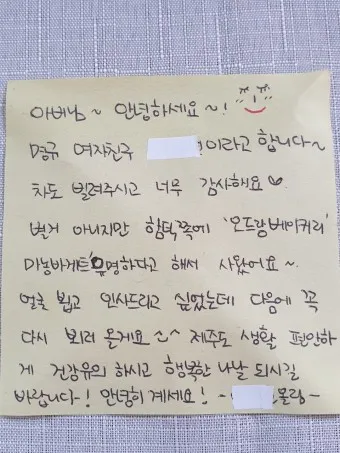 아버님~ 안녕하세요~!
명규 여자친구 이라고 합니다~
차도 빌려주시고 너무 감사해요♡
별거 아니지만 함덕쪽에 '오드랑베이커리'
마농바게트 유명하다고 해서 사왔어요~.
얼굴 뵙고 인사드리고 싶었는데 다음에 꼭
다시 뵈러 올게요^^ 제주도 생활 편안하
게 건강유의 하시고 행복한 나날 되시길
바랍니다! 안녕히 계세요! - 올림-